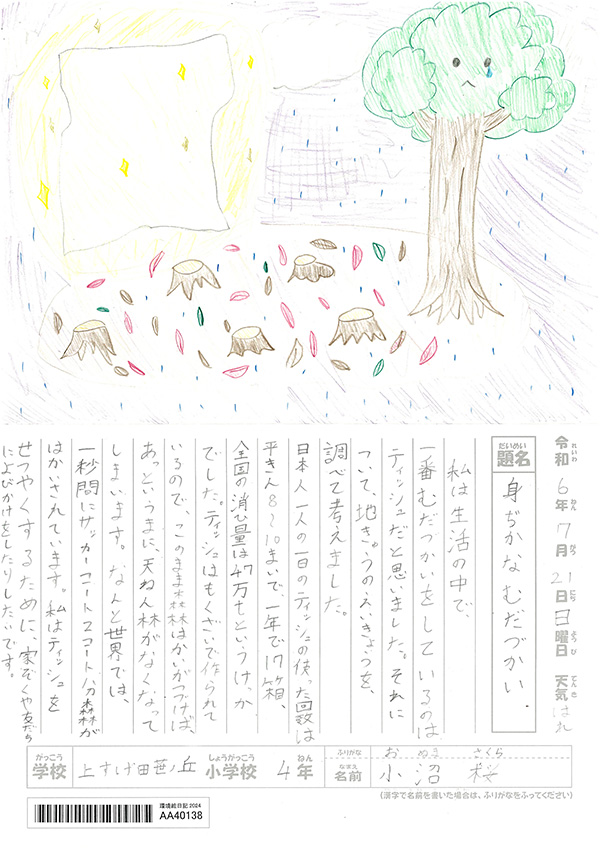 令和6年7月21日日曜日 天気 はれ
れいわ ねん がつ にち ようび てんき
だいめい
題名 身ぢかなむだづかい.
私は生活の中で、
一番むだづかいをしているのは
ティッシュだと思いました。それに
ついて、地きゅうのえいきょうを、
調べて考えました。
日本人一人の一日のティッシュの使った回数は
平きん8〜10まいで、一年で17箱、
全国の消ひ量は47万tというけっか
でした。ティッシュはもくざいで作られて
いるので、このまま森林はかいがつづけば、
あっというまに、天ねん林がなくなって
しまいます。なんと世界では、
一秒間にサッカーコート2コート分の森が
はかいされています。私はティッシュを
せつやくするために、家ぞくや友だち
によびかけをしたりしたいです。
がっこう しょうがっこう ねん ふりがな おぬま さくら
学校 上すげ田笹ノ丘 小学校 4年 なまえ 名前 小沼 桜
(漢字で名前を書いた場合は、ふりがなをふってください)
環境絵日記 2024
AA40138